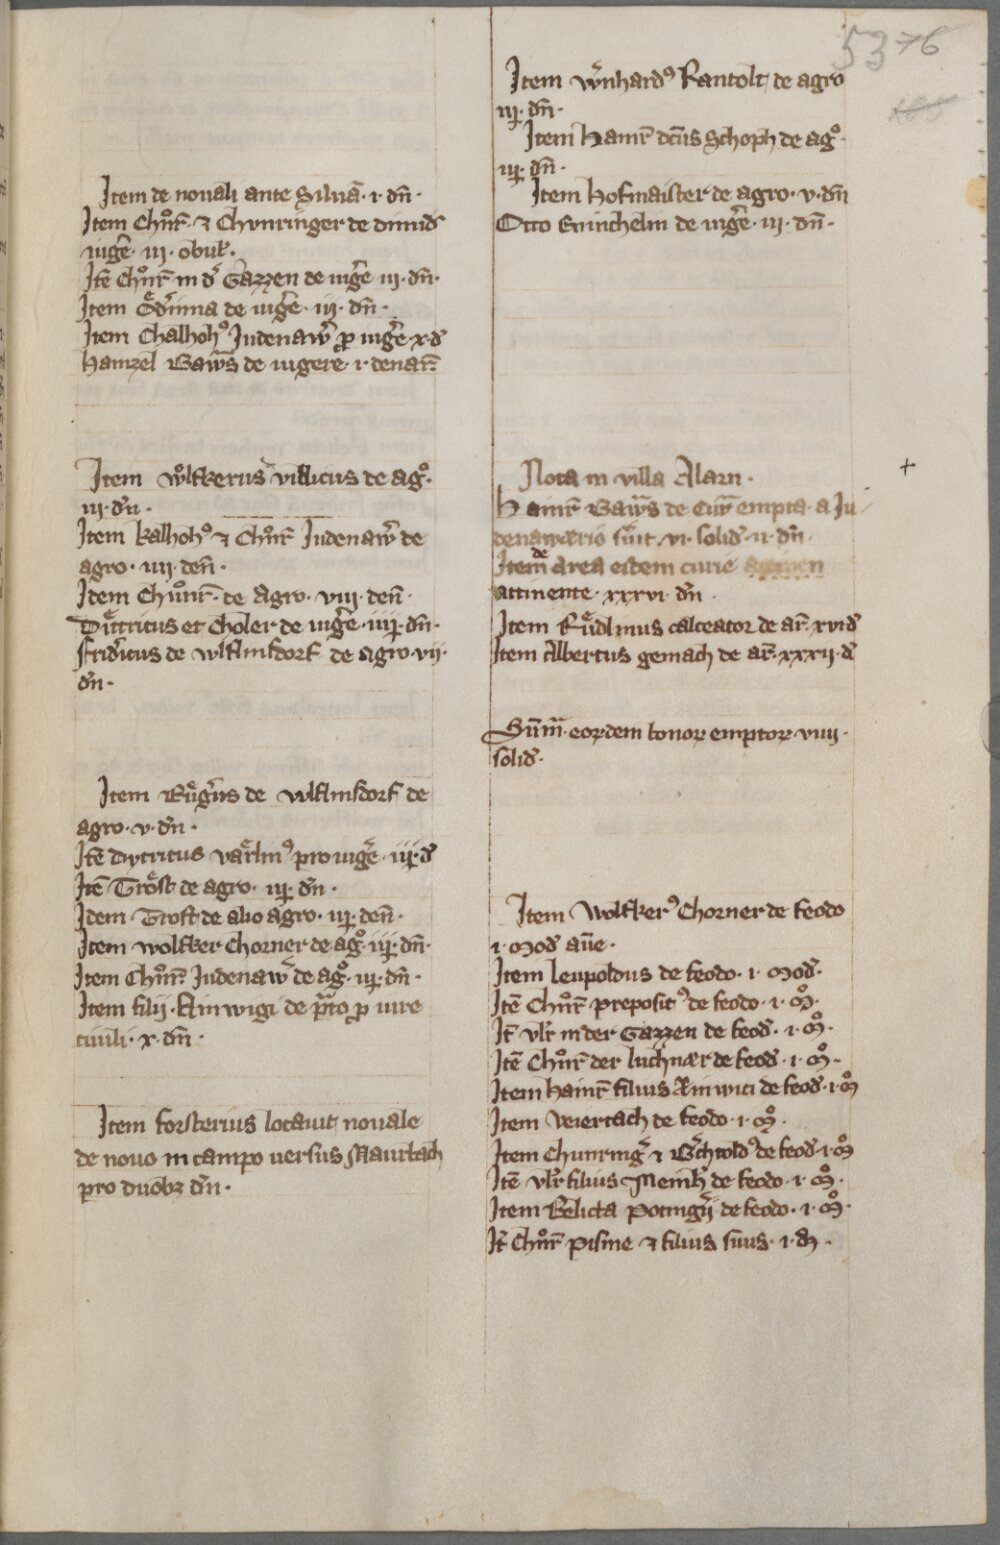 Item de novali ante Siluā · i · dn̄ ·
Item Chůnr̄ · ⁊ Chvnringer de dimid̄
iug̅e · iii · obul̄ ·
Itē Chůnr̄ in d̓ Gazzen de iug̅e iij · dn̄ ·
Item de iug̅e · iij · dn̄ ·
Item Chalhoh⁹ Judenaw̓ ꝓ iug̅e · x · d̄
Hainzel Baw̅s de iugere · i · denar̄
Item wolfkerus villicus de ag̊ ·
iii · dn̄ ·
Item kalhoh⁹ ⁊ Chůnr̄ Judenaw̓ de
agro · iiii · den̄ ·
Idem Chůnr̄ · de Agro · viii · den̄ ·
Dietricus et Choler de iug̅e · iiij · dn̄ ·
frid̓icus de wlflinsdorf de agro · vij ·
dn̄ ·
Item Růg̓us de wlflinsdorf de
agro · v · dn̄ ·
Itē dytricus pro iug̅e · iij · d̄
Itē Tröst de agro · iij · dn̄ ·
Idem Trost de alio agro · iij · den̄ ·
Item wolfker Chorner de ag̊ · iij · dn̄ ·
Item Chůnr̄ Judenaw̓ de ag̊ · iij · dn̄ ·
Item filij · Ainwigi de p̅to ꝓ iure
ciuili · x · dn̄ ·
Item forsterius locauit novale
de novo in campo uersus Maurbach
pro duobꝫ dn̄ ·
53 76
Item w̓nhard⁹ Rantolt de agro
iij · dn̄ ·
Item Hainr̄ dc̄us Schoph de ag̊ ·
iij · dn̄ ·
Item Hofmaister de agro · v · dn̄
Otto de iug̅e · iii · dn̄ ·
Nota in villa Alarn ·
+
Hainr̄ Baw̅s de Cur̄ empta · a Ju
denawerio sūt · vi · solid̄ · ii · dn̄ ·
Item de area eidem curie
attinente · xxxvi · dn̄ ·
Item Rudlinus calceator de ar̄ · xvi d̄
Item Albertus gemach de ar̄ · xxxij · d̄
Sum̄a · eoꝝdem bonoꝝ emptoꝝ · viiii ·
solid̄ ·
Item Wolfker⁹ Chorner de feodo
i · mod̄ aūe ·
Item leupoldus de feodo · i · mod̄ ·
Itē Chůnr̄ preposit⁹ de feodo · i · m̊ ·
It̄ vlr̄ in der Gazzen de feod̄ · i · m̊ ·
Itē Chůnr̄ der luchner de feod̄ · i · m̊ ·
Item Hainr̄ filius Ainwici de feod̄ · i · m̊
Item veiertach de feodo · i · m̊ ·
Item Chunring̓ ⁊ B̓chtold⁹ de feod̄ · i · m̊
Itē vlr̄ filius Meinh̓ de feodo · i · m̊ ·
Item Relicta de feodo · i · m̊ ·
It̄ Chůnr̄ Pisine ⁊ filius suus · i · m̊ ·